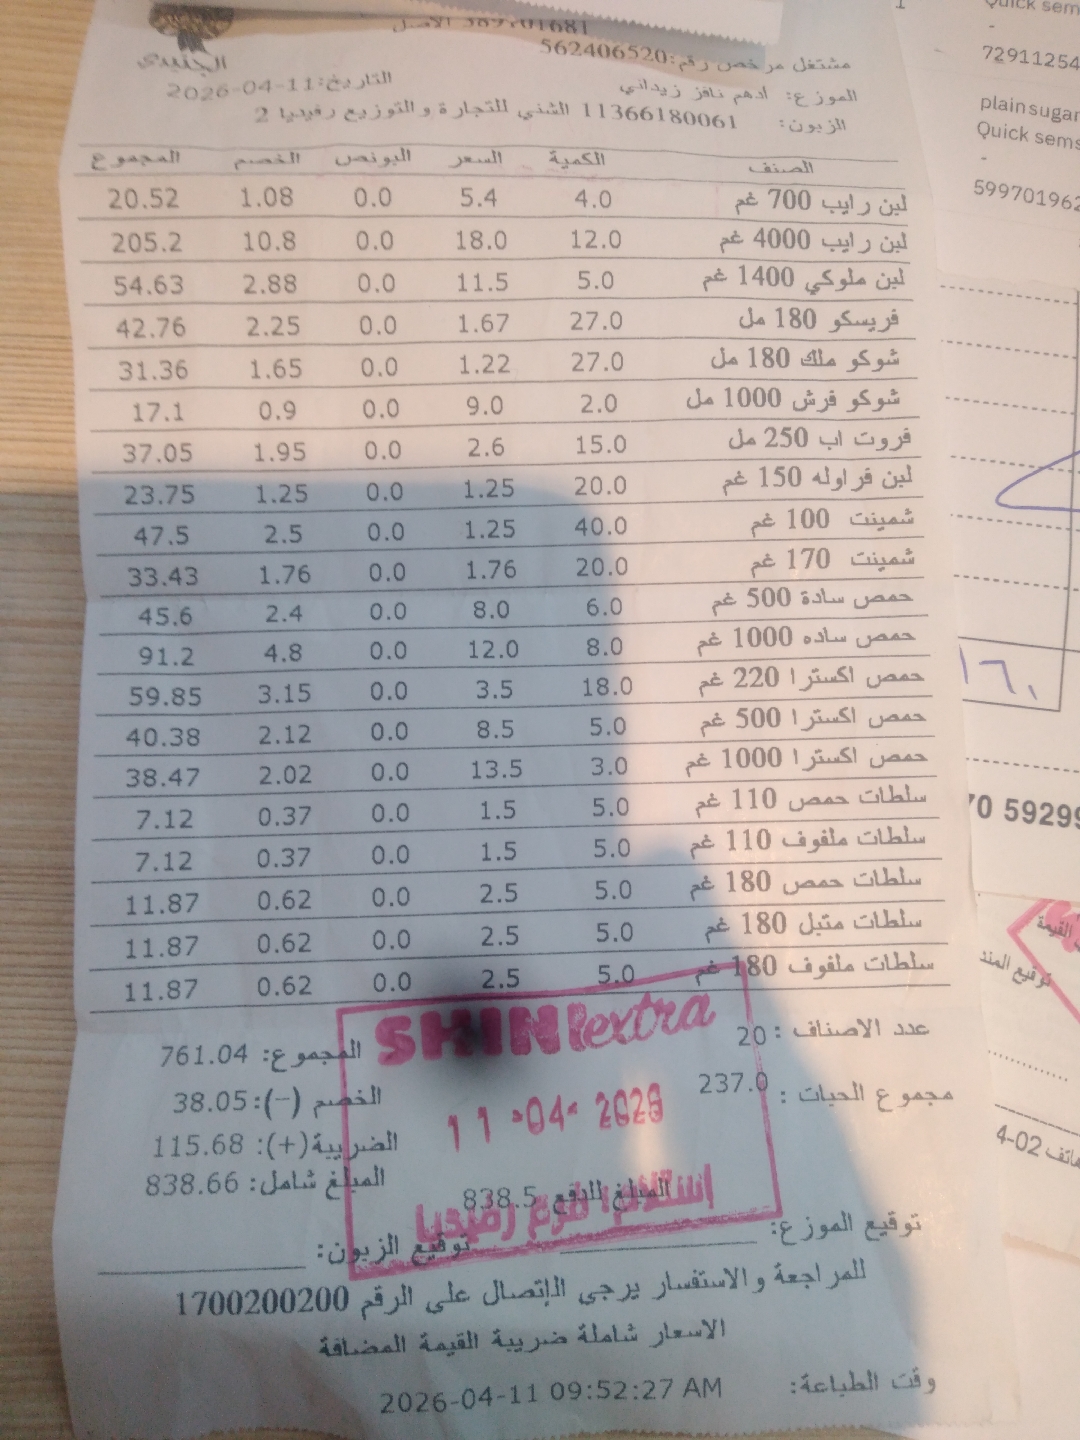 الجنيدي
الأصل 569701681
مشتغل مرخص رقم:562406520
الموزع: ادهم نافز زيداني
التاريخ:2026-04-11
الزبون: 11366180061 الشني للتجارة و التوزيع رفيديا 2
الصنف الكمية السعر البونص الخصم المجموع
لبن رايب 700 غم 4.0 5.4 0.0 1.08 20.52
لبن رايب 4000 غم 12.0 18.0 0.0 10.8 205.2
لبن ملوكي 1400 غم 5.0 11.5 0.0 2.88 54.63
فريسكو 180 مل 27.0 1.67 0.0 2.25 42.76
شوكو ملك 180 مل 27.0 1.22 0.0 1.65 31.36
شوكو فرش 1000 مل 2.0 9.0 0.0 0.9 17.1
فروت اب 250 مل 15.0 2.6 0.0 1.95 37.05
لبن فراوله 150 غم 20.0 1.25 0.0 1.25 23.75
شمينت 100 غم 40.0 1.25 0.0 2.5 47.5
شمينت 170 غم 20.0 1.76 0.0 1.76 33.43
حمص سادة 500 غم 6.0 8.0 0.0 2.4 45.6
حمص ساده 1000 غم 8.0 12.0 0.0 4.8 91.2
حمص اكسترا 220 غم 18.0 3.5 0.0 3.15 59.85
حمص اكسترا 500 غم 5.0 8.5 0.0 2.12 40.38
حمص اكسترا 1000 غم 3.0 13.5 0.0 2.02 38.47
سلطات حمص 110 غم 5.0 1.5 0.0 0.37 7.12
سلطات ملفوف 110 غم 5.0 1.5 0.0 0.37 7.12
سلطات حمص 180 غم 5.0 2.5 0.0 0.62 11.87
سلطات متبل 180 غم 5.0 2.5 0.0 0.62 11.87
سلطات ملفوف 180 غم 5.0 2.5 0.0 0.62 11.87
عدد الاصناف : 20
المجموع: 761.04
مجموع الحبات : 237.0
الخصم (-): 38.05
الضريبة(+): 115.68
المبلغ شامل: 838.66
المبلغ للدفع 838.5
SHINI extra
11 -04- 2026
استلام فرع رفيديا
توقيع الموزع:
توقيع الزبون:
للمراجعة والاستفسار يرجى الإتصال على الرقم 1700200200
الاسعار شاملة ضريبة القيمة المضافة
وقت الطباعة: 2026-04-11 09:52:27 AM
1
Quick sem
-
72911254
plainsugar
Quick sems
-
599701962
١٦٠
70 59299
القيمة
توقيع المند
هاتف 02-4